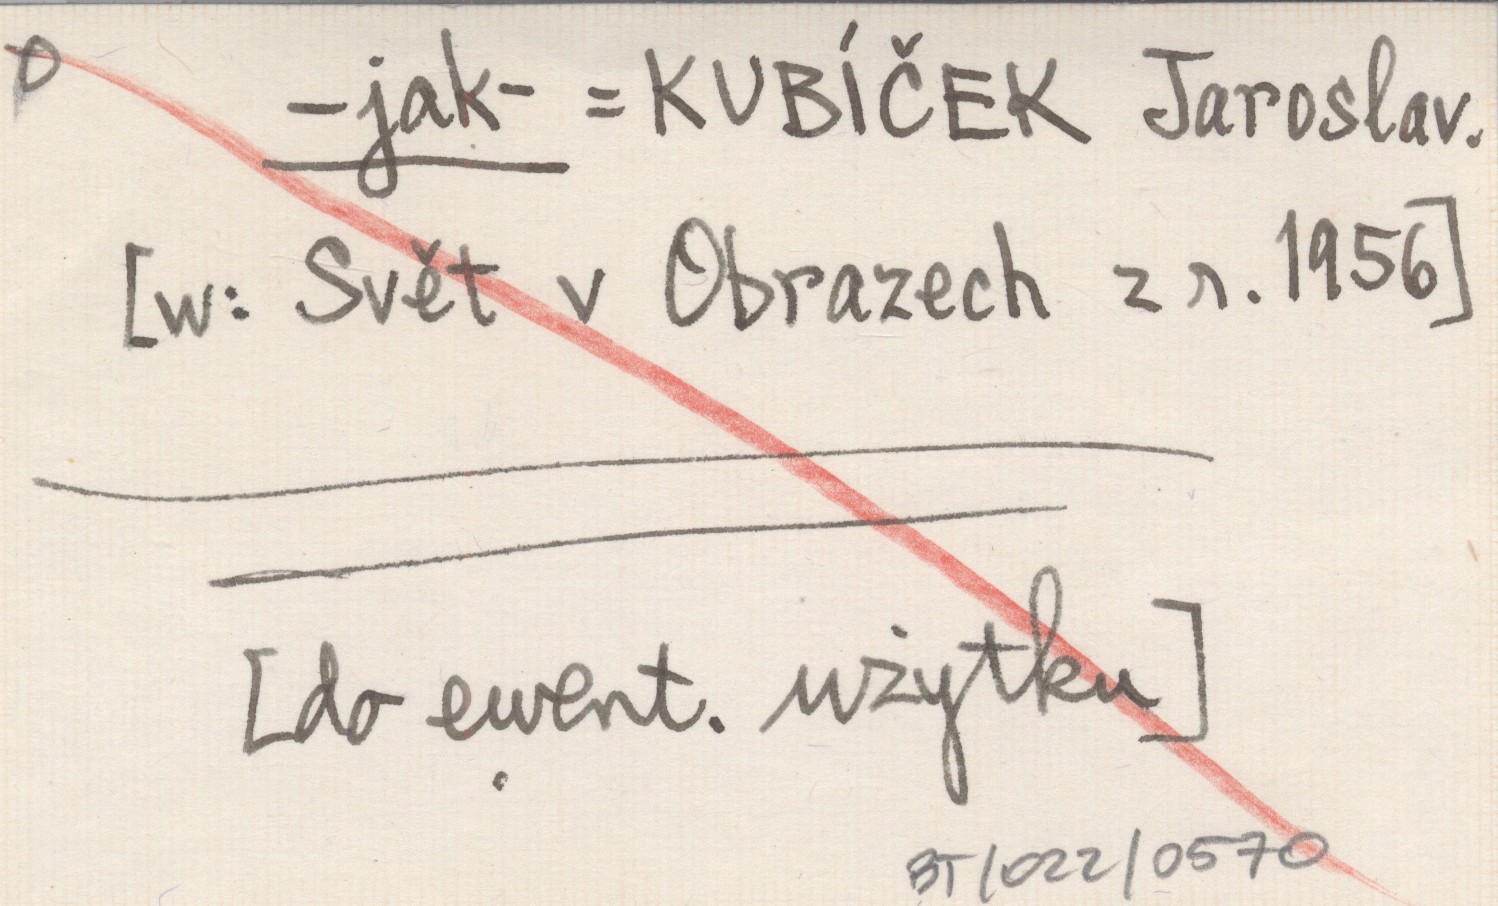 -jak- = KUBÍČEK Jaroslav.
[w: Svět v Obrazech z r. 1956]
[do ewent. użytku]
BT/022/0570